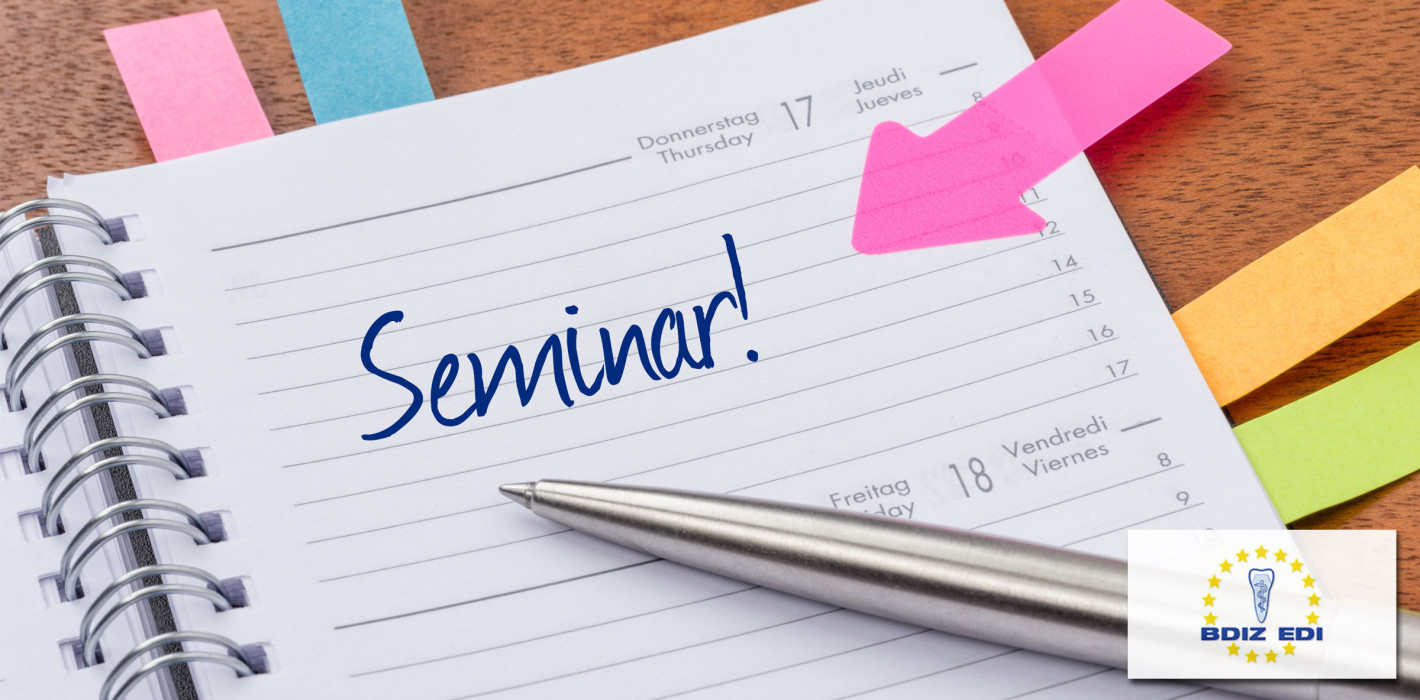 Donnerstag 17 Jeudi
Thursday Jueves
8
10
11
12
14
15
16
17
Seminar!
Freitag 18 Vendredi
Viernes
8
9
10
BDIZ EDI